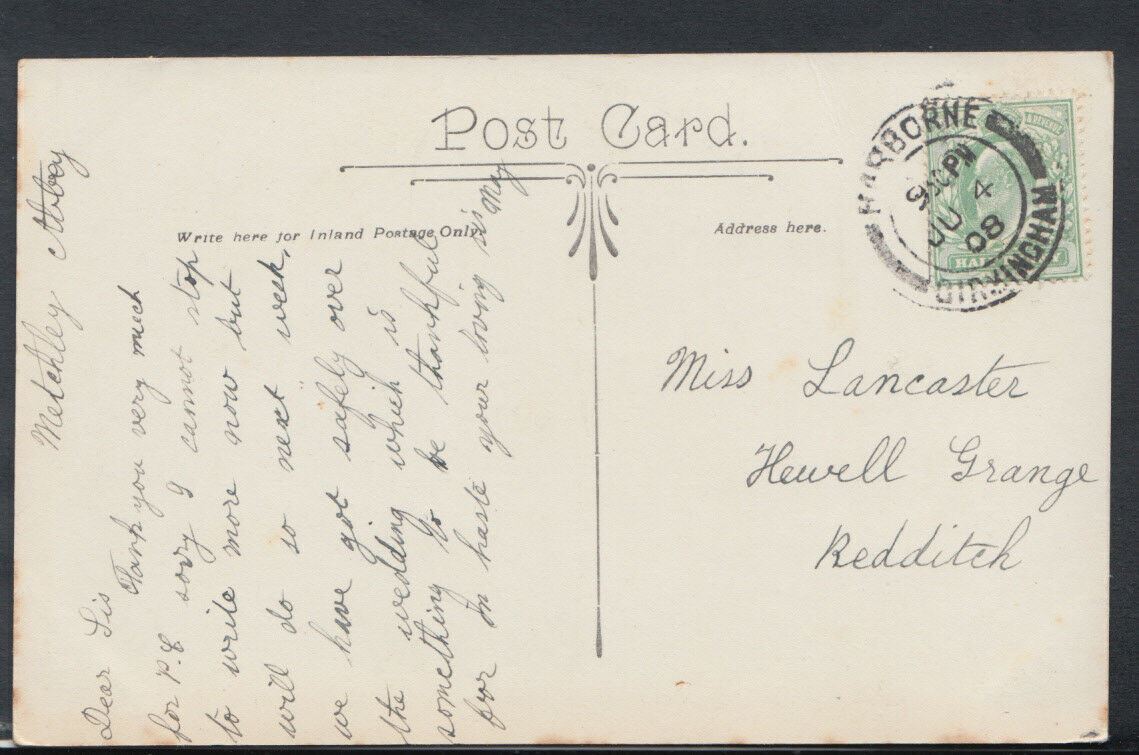 Post Card.
Write here for Inland Postage Only.
Address here.
HARBORNE
BIRMINGHAM
PM
JU 4
08
HAL
Metchley Abbey
Dear Sis
Thank you very much
for P.C sorry I cannot stop
to write more now but
will do so next week,
we have got safely over
the wedding which is
something to be thankful
for In haste your loving sis May
Miss Lancaster
Hewell Grange
Redditch